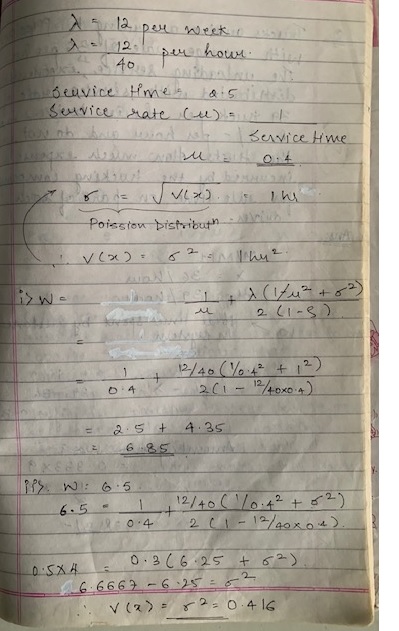 λ = 12 per week
λ = 12/40 per hour.
Service time = 2.5
Service rate (μ) = 1 / Service time
μ = 0.4
σ = √V(x) = 1 hr
Poission Distributⁿ
∴ V(x) = σ² = 1 hr²
i> W = 1/μ + λ(1/μ² + σ²) / 2(1-ρ)
=
= 1/0.4 + 12/40 (1/0.4² + 1²) / 2(1 - 12/40x0.4)
= 2.5 + 4.35
= 6.85
ii> W = 6.5
6.5 = 1/0.4 + 12/40 (1/0.4² + σ²) / 2(1 - 12/40x0.4).
0.5x4 = 0.3(6.25 + σ²)
6.6667 - 6.25 = σ²
∴ V(x) = σ² = 0.416